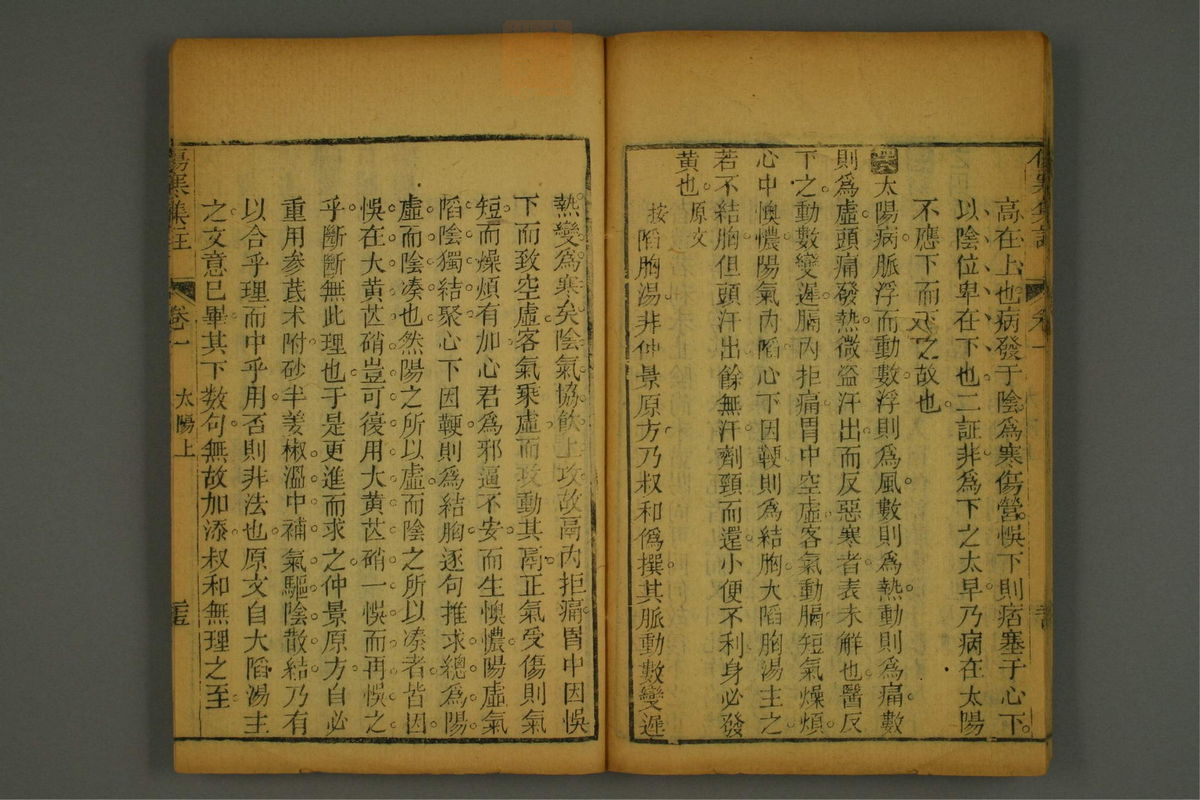 高在上也病發于陰為寒傷營悞下則痞塞于心下
以陰位卑在下也二証非為下之太早乃病在太陽
不應下而下之故也
太陽病脈浮而動數浮則為風數則為熱動則為痛數
則為虛頭痛發熱微盜汗出而反惡寒者表未解也醫反
下之動數變遲膈內拒痛胃中空虛客氣動膈短氣燥煩
心中懊憹陽氣內陷心下因鞕則為結胸大陷胸湯主之
若不結胸但頭汗出餘無汗劑頸而還小便不利身必發
黃也 原文
按陷胸湯非仲景原方乃叔和僞撰其脈動數變遲
傷寒集註 卷一 太陽上
熱變為寒矣陰氣協飲上攻故鬲內拒痛胃中因悞
下而致空虛客氣乘虛而攻動其鬲正氣受傷則氣
短而燥煩有加心君為邪逼不安而生懊憹陽虛氣
陷陰獨結聚心下因鞕則為結胸逐句推求總為陽
虛而陰凑也然陽之所以虛而陰之所以凑者皆因
悞在大黃芒硝豈可復用大黃芒硝一悞而再悞之
乎斷斷無此理也于是更進而求之仲景原方自必
重用參芪术附砂半姜椒溫中補氣驅陰散結乃有
以合乎理而中乎用否則非法也原文自大陷湯主
之文意已畢其下数句無故加添叔和無理之至